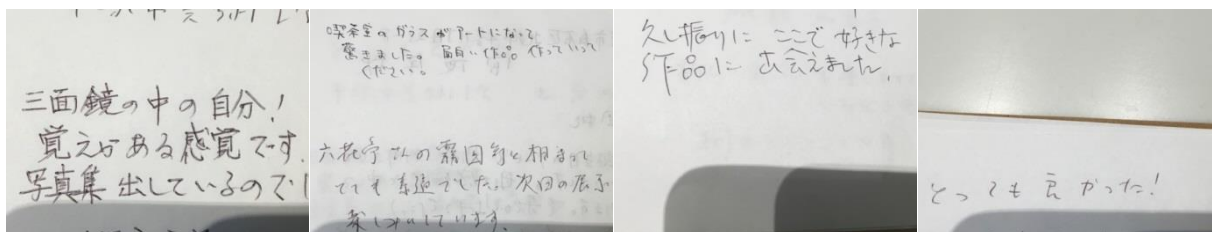 三面鏡の中の自分!
覚えがある感覚です.
写真集 出しているので
喫茶室の ガラス が アートになって
驚きました。 面白い作品 作っていって
ください。
六花亭さんの 雰囲気と相まって
とても素適でした。 次回の展示
楽しみにしています。
久し振りに ここで 好きな
作品に 出会えました.
とっても 良かった!